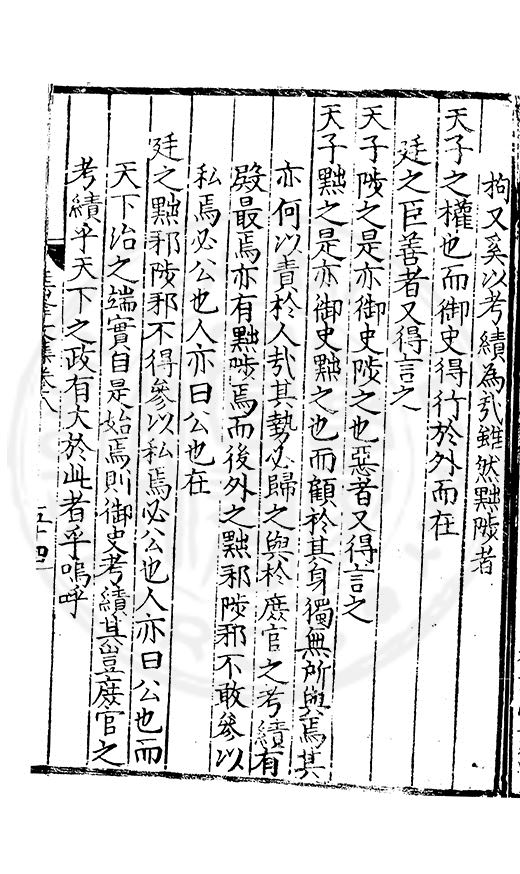 拘又奚以考績為㢤雖然黜陟者
天子之權也而御史得行於外而在
廷之臣善者又得言之
天子陟之是亦御史陟之也惡者又得言之
天子黜之是亦御史黜之也而顧於其身獨無所與焉其
亦何以責於人㢤其勢必歸之與於庶官之考績有
殿最焉亦有黜陟焉而後外之黜邪陟邪不敢參以
私焉必公也人亦曰公也在
廷之黜邪陟邪不得參以私焉必公也人亦曰公也而
天下治之端實自是始焉則御史考績其豈庶官之
考績乎天下之政有大於此者乎嗚呼
文集卷八
五十四